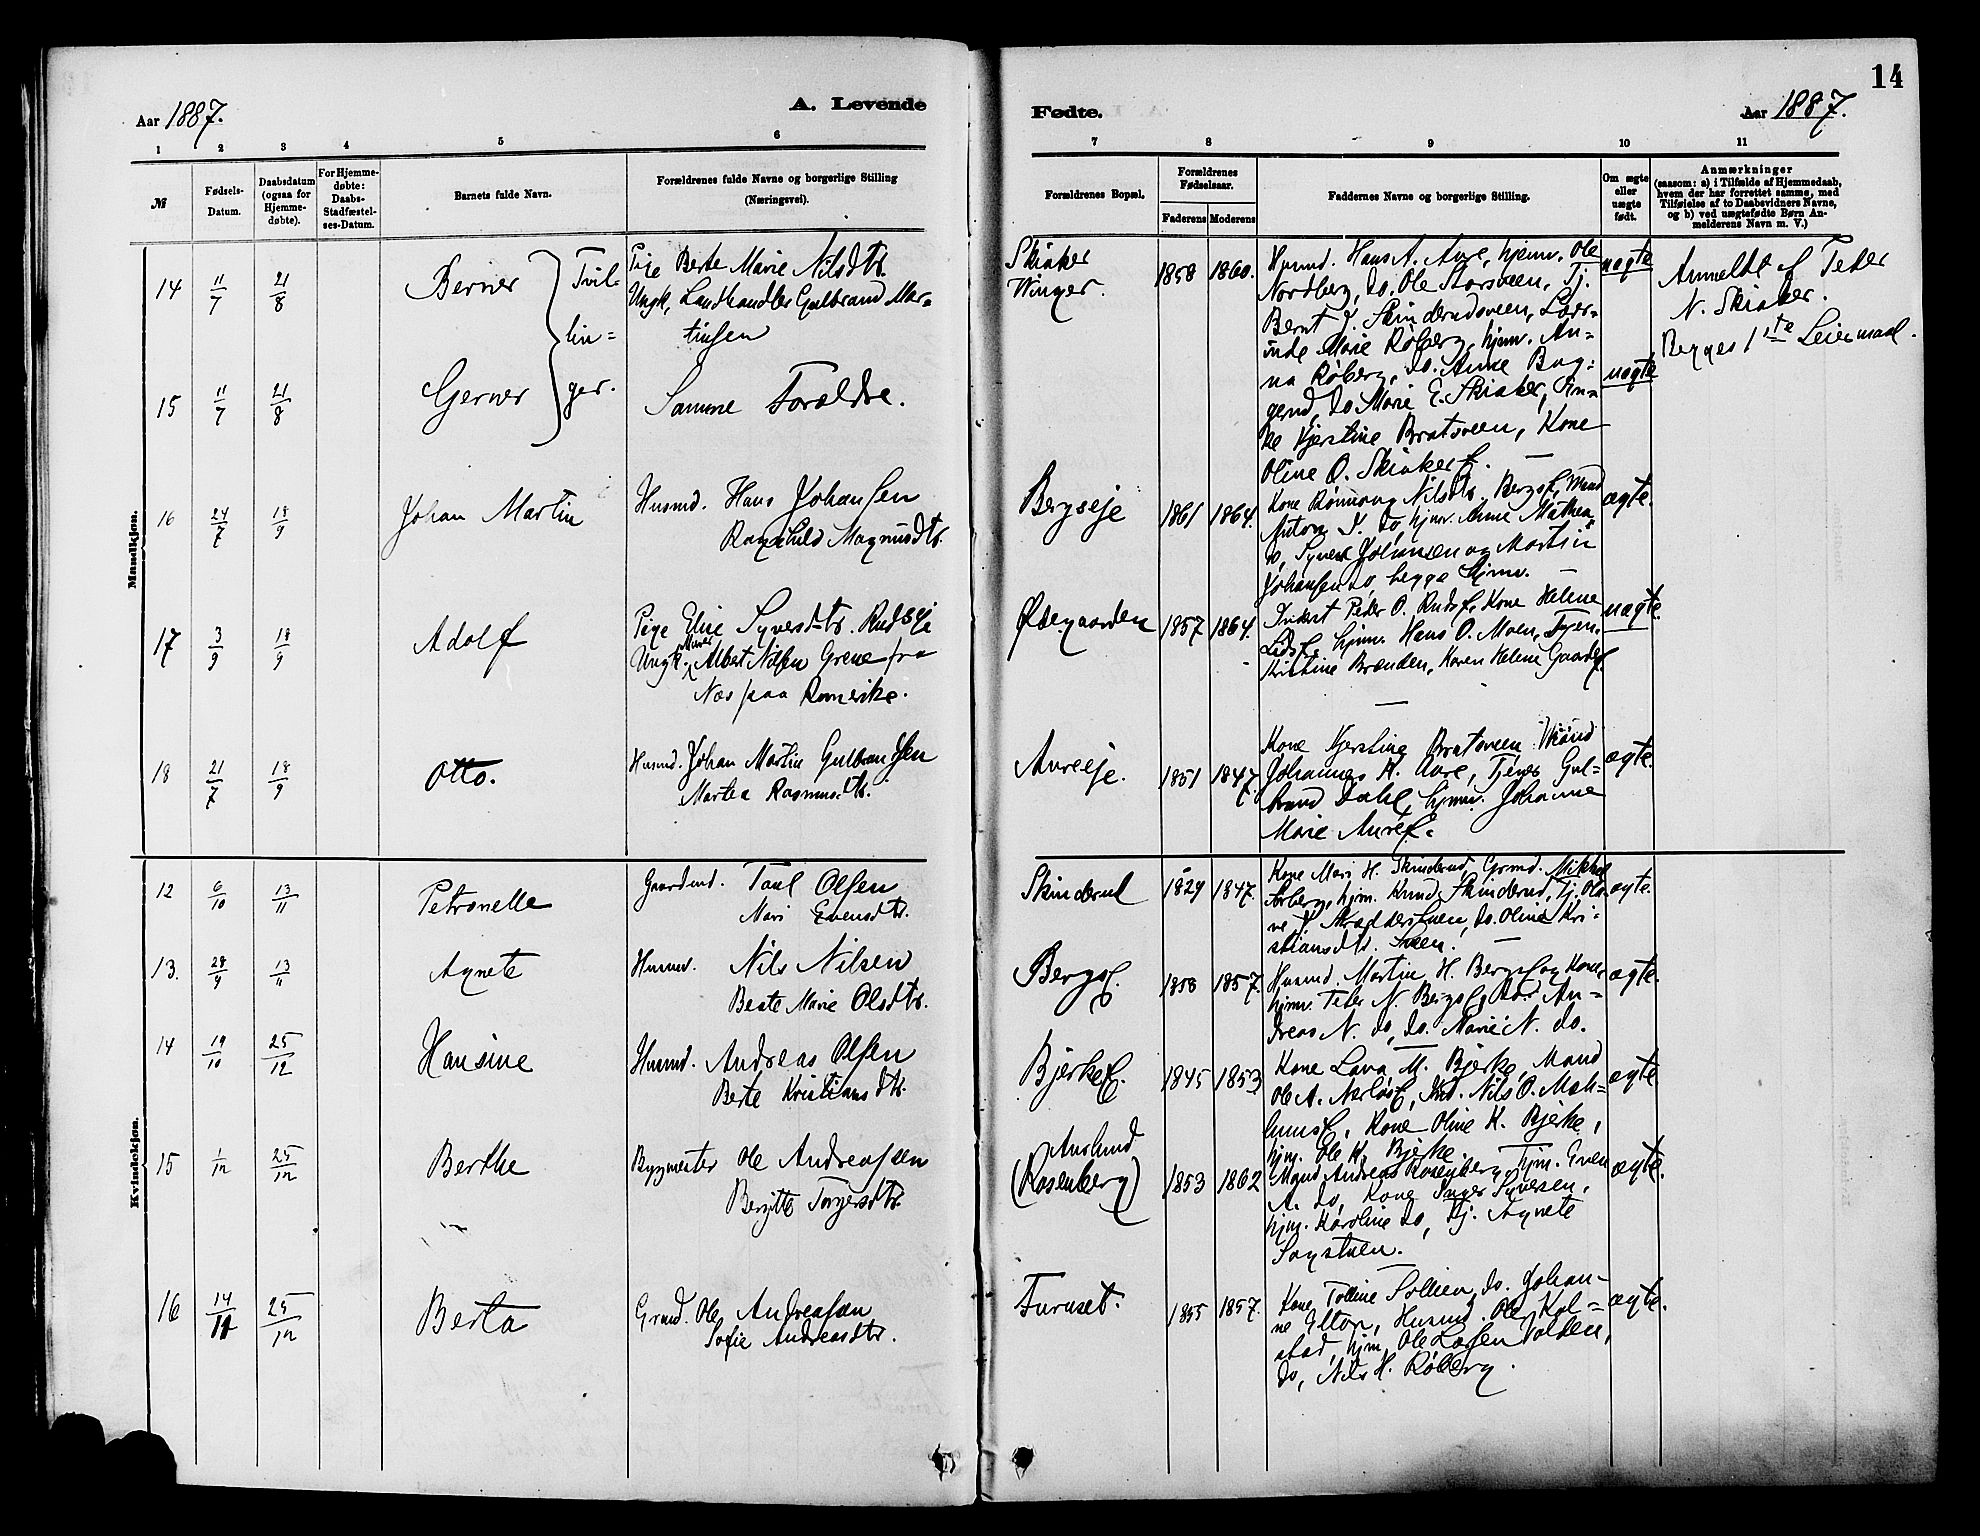 14
Aar 1887.
A. Levende
Fødte.
Aar 1887.
1 2 3 4 5 6
7 8 9 10 11
№
Fødsels-
Datum.
Daabsdatum
(ogsaa for
Hjemme-
døbte).
For Hjemme-
døbte:
Daabs-
Stadfæstel-
ses-Datum.
Barnets fulde Navn.
Forældrenes fulde Navne og borgerlige Stilling
(Næringsvei).
Forældrenes Bopæl.
Forældrenes
Fødselsaar.
Faderens Moderens
Faddernes Navne og borgerlige Stilling.
Om ægte
eller
uægte
født.
Anmærkninger
(saasom: a) i Tilfælde af Hjemmedaab,
hvem der har forrettet samme, med
Tilføielse af to Daabsvidners Navne,
og b) ved uægtefødte Børn An-
melderens Navn m. V.)
Mandkjøn.
14 11/7 21/8 Berner
Tvil-
lin-
ger.
Pige Berte Marie Nilsdtr.
Ungk. Landhandler Gulbrand Mar-
tinsen
Skiaker
Winger.
1858 1860.
Husmd. Hans A. Aure, hjmv. Ole
Nordberg, do. Ole Storsveen, Tj.
Bernt J. Skinderudsveen, Lær-
inde Marie Røberg, hjmv. An-
na Røberg, do. Anne Bag-
gerud, do Marie E. Skiaker,
Kjerstine Bratsveen, Kone
Oline O. Skiakere.
uægte
Anmeldt af Peder
N. Skiaker.
Begges 1ste Leiermaal.
15 11/7 21/8 Gerner
Samme Forældre.
uægte
16 24/7 18/9 Johan Martin
Husmd. Hans Johansen
Ragnhild Magnusdtr.
Bergseje
1861 1864.
Kone Rønnaug Nilsdtr. Bergse, Mand
Anton J. do, hjmv. Anne Mathea
do, Syver Johansen og Martin
Johansen do, begge hjmv.
ægte.
17 3/9 18/9 Adolf
Pige Elise Syversdtr. Rudseje
Ungk. Murer Albert Nilsen Grene fra
Næs paa Romerike.
Ødegaarden
1857 1864.
Inderst Peder O. Rudse, Kone Helene
Lidse, hjmv. Hans O. Moen, Tjen.
Kristine Brænden, Karen Helene Gaarde.
uægte.
18 21/7 18/9 Otto.
Husmd. Johan Martin Gulbrandsen
Martea Rasmusdtr.
Aureeje.
1851 1847.
Kone Kjerstine Bratsveen, Mand
Johannes K. Aure, Tjener Gul-
brand Dahl, hjmv. Johanne
Marie Aure.
ægte.
Kvindekjøn.
12 6/10 13/11 Petronelle
Gaardmd. Paul Olsen
Mari Evensdtr.
Skinderud
1829 1847.
Kone Mari H. Skinderud, Grmd. Mikkel
hjm. Knud Skinderud, Tj. Oli-
ne J. Skrædderstuen, do. Oline Kri-
stiansdtr. Sveen.
ægte.
13. 28/9 13/11 Agnete
Husmd. Nils Nilsen
Berte Marie Olsdtr.
Bergse.
1858 1857.
Husmd. Martin H. Bergse og Kone,
hjmv. Peder N. Bergse, do. An-
dreas N. do, do. Marie N. do.
ægte.
14 19/10 25/12 Hansine
Husmd. Andreas Olsen
Berte Kristiansdtr.
Bjerkee.
1845 1853
Kone Lava M. Bjerke, Mand
Ole A. Nerløse, Ind. Nils O. Meh-
lumse, Kone Oline K. Bjerke,
hjm. Ole K. Bjerke.
ægte.
15 1/12 25/12 Berthe
Bygmester Ole Andreassen
Bergitte Torgersdtr.
Aurlund
(Rosenberg)
1853 1862
Mand Andreas Rosenberg, hjm. Even
A. do, Kone Inger Syversen,
hjm. Karoline do, Tj. Agnete
Sagstuen.
ægte.
16 14/11 25/12 Berta
Grmd. Ole Andreassen
Sofie Andreasdtr.
Furuset.
1855 1857.
Kone Polline Sollien, do. Johan-
ne Elton, Husmd. Ole Kol-
stad, hjm. Ole Larsen Volden,
do, Nils H. Røberg.
ægte.